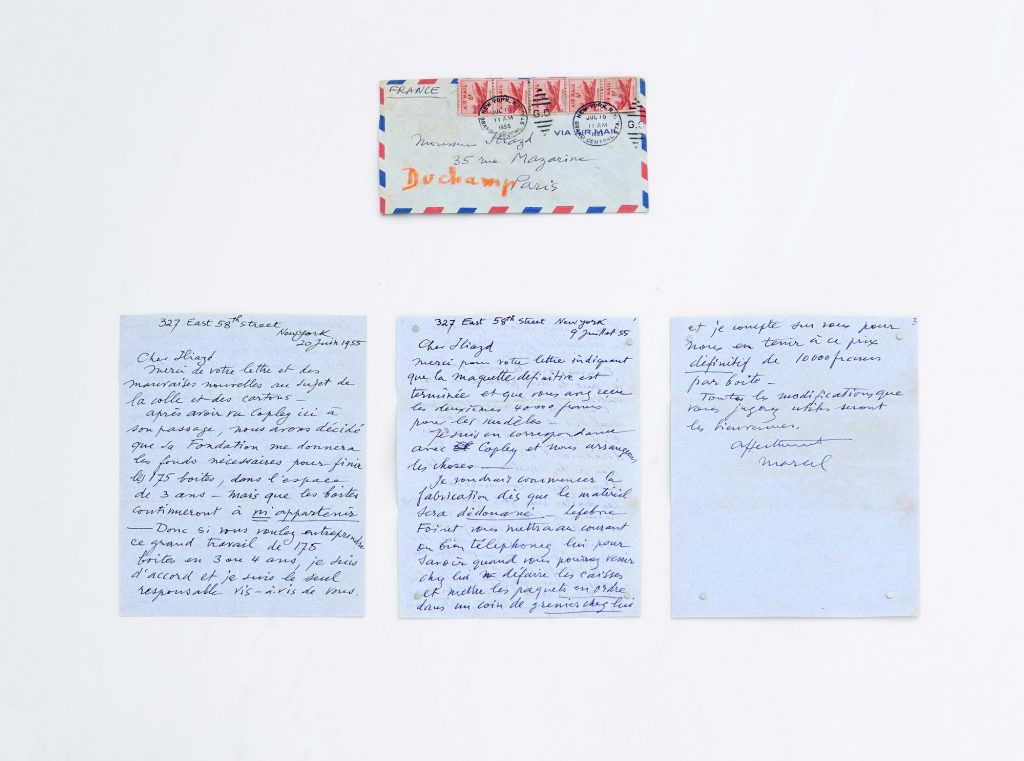 FRANCE
AIR MAIL 6¢
NEW YORK, N.Y.
JUL 16
11 AM
1955
GRAND CENTRAL STA.
G.C
VIA AIR MAIL
NEW YORK, N.Y.
JUL 16
11 AM
1955
GRAND CENTRAL STA.
G.C
Monsieur Iliazd
35 rue Mazarine
Paris
Duchamp
327 East 58th Street
New York
20 Juin 1955
Cher Iliazd
Merci de votre lettre et des
mauvaises nouvelles au sujet de
la colle et des cartons —
après avoir vu Copley ici à
son passage, nous avons décidé
que sa Fondation me donnera
les fonds nécessaires pour finir
les 175 boites, dans l'espace
de 3 ans — mais que les boites
continueront à m'appartenir
— Donc si vous voulez entreprendre
ce grand travail de 175
boites en 3 ou 4 ans, je suis
d'accord et je suis le seul
responsable vis-à-vis de vous.
327 East 58th Street New York
9 Juillet 55
Cher Iliazd
merci pour votre lettre indiquant
que la maquette definitive est
terminée et que vous avez reçu
les deuxièmes 40000 francs
pour les modèles —
Je suis en correspondance
avec Copley et nous arrangeons
les choses —
Je voudrais commencer la
fabrication dès que le matériel
sera dédouané — Lefebvre
Foinet vous mettra au courant
ou bien téléphonez lui pour
savoir quand vous pourrez venir
chez lui défaire les caisses
et mettre les paquets en ordre
dans un coin de grenier chez lui
3
et je compte sur vous pour
nous en tenir à ce prix
définitif de 10000 francs
par boite —
Toutes les modifications que
vous jugez utiles seront
les bienvenues.
affectueusement
Marcel